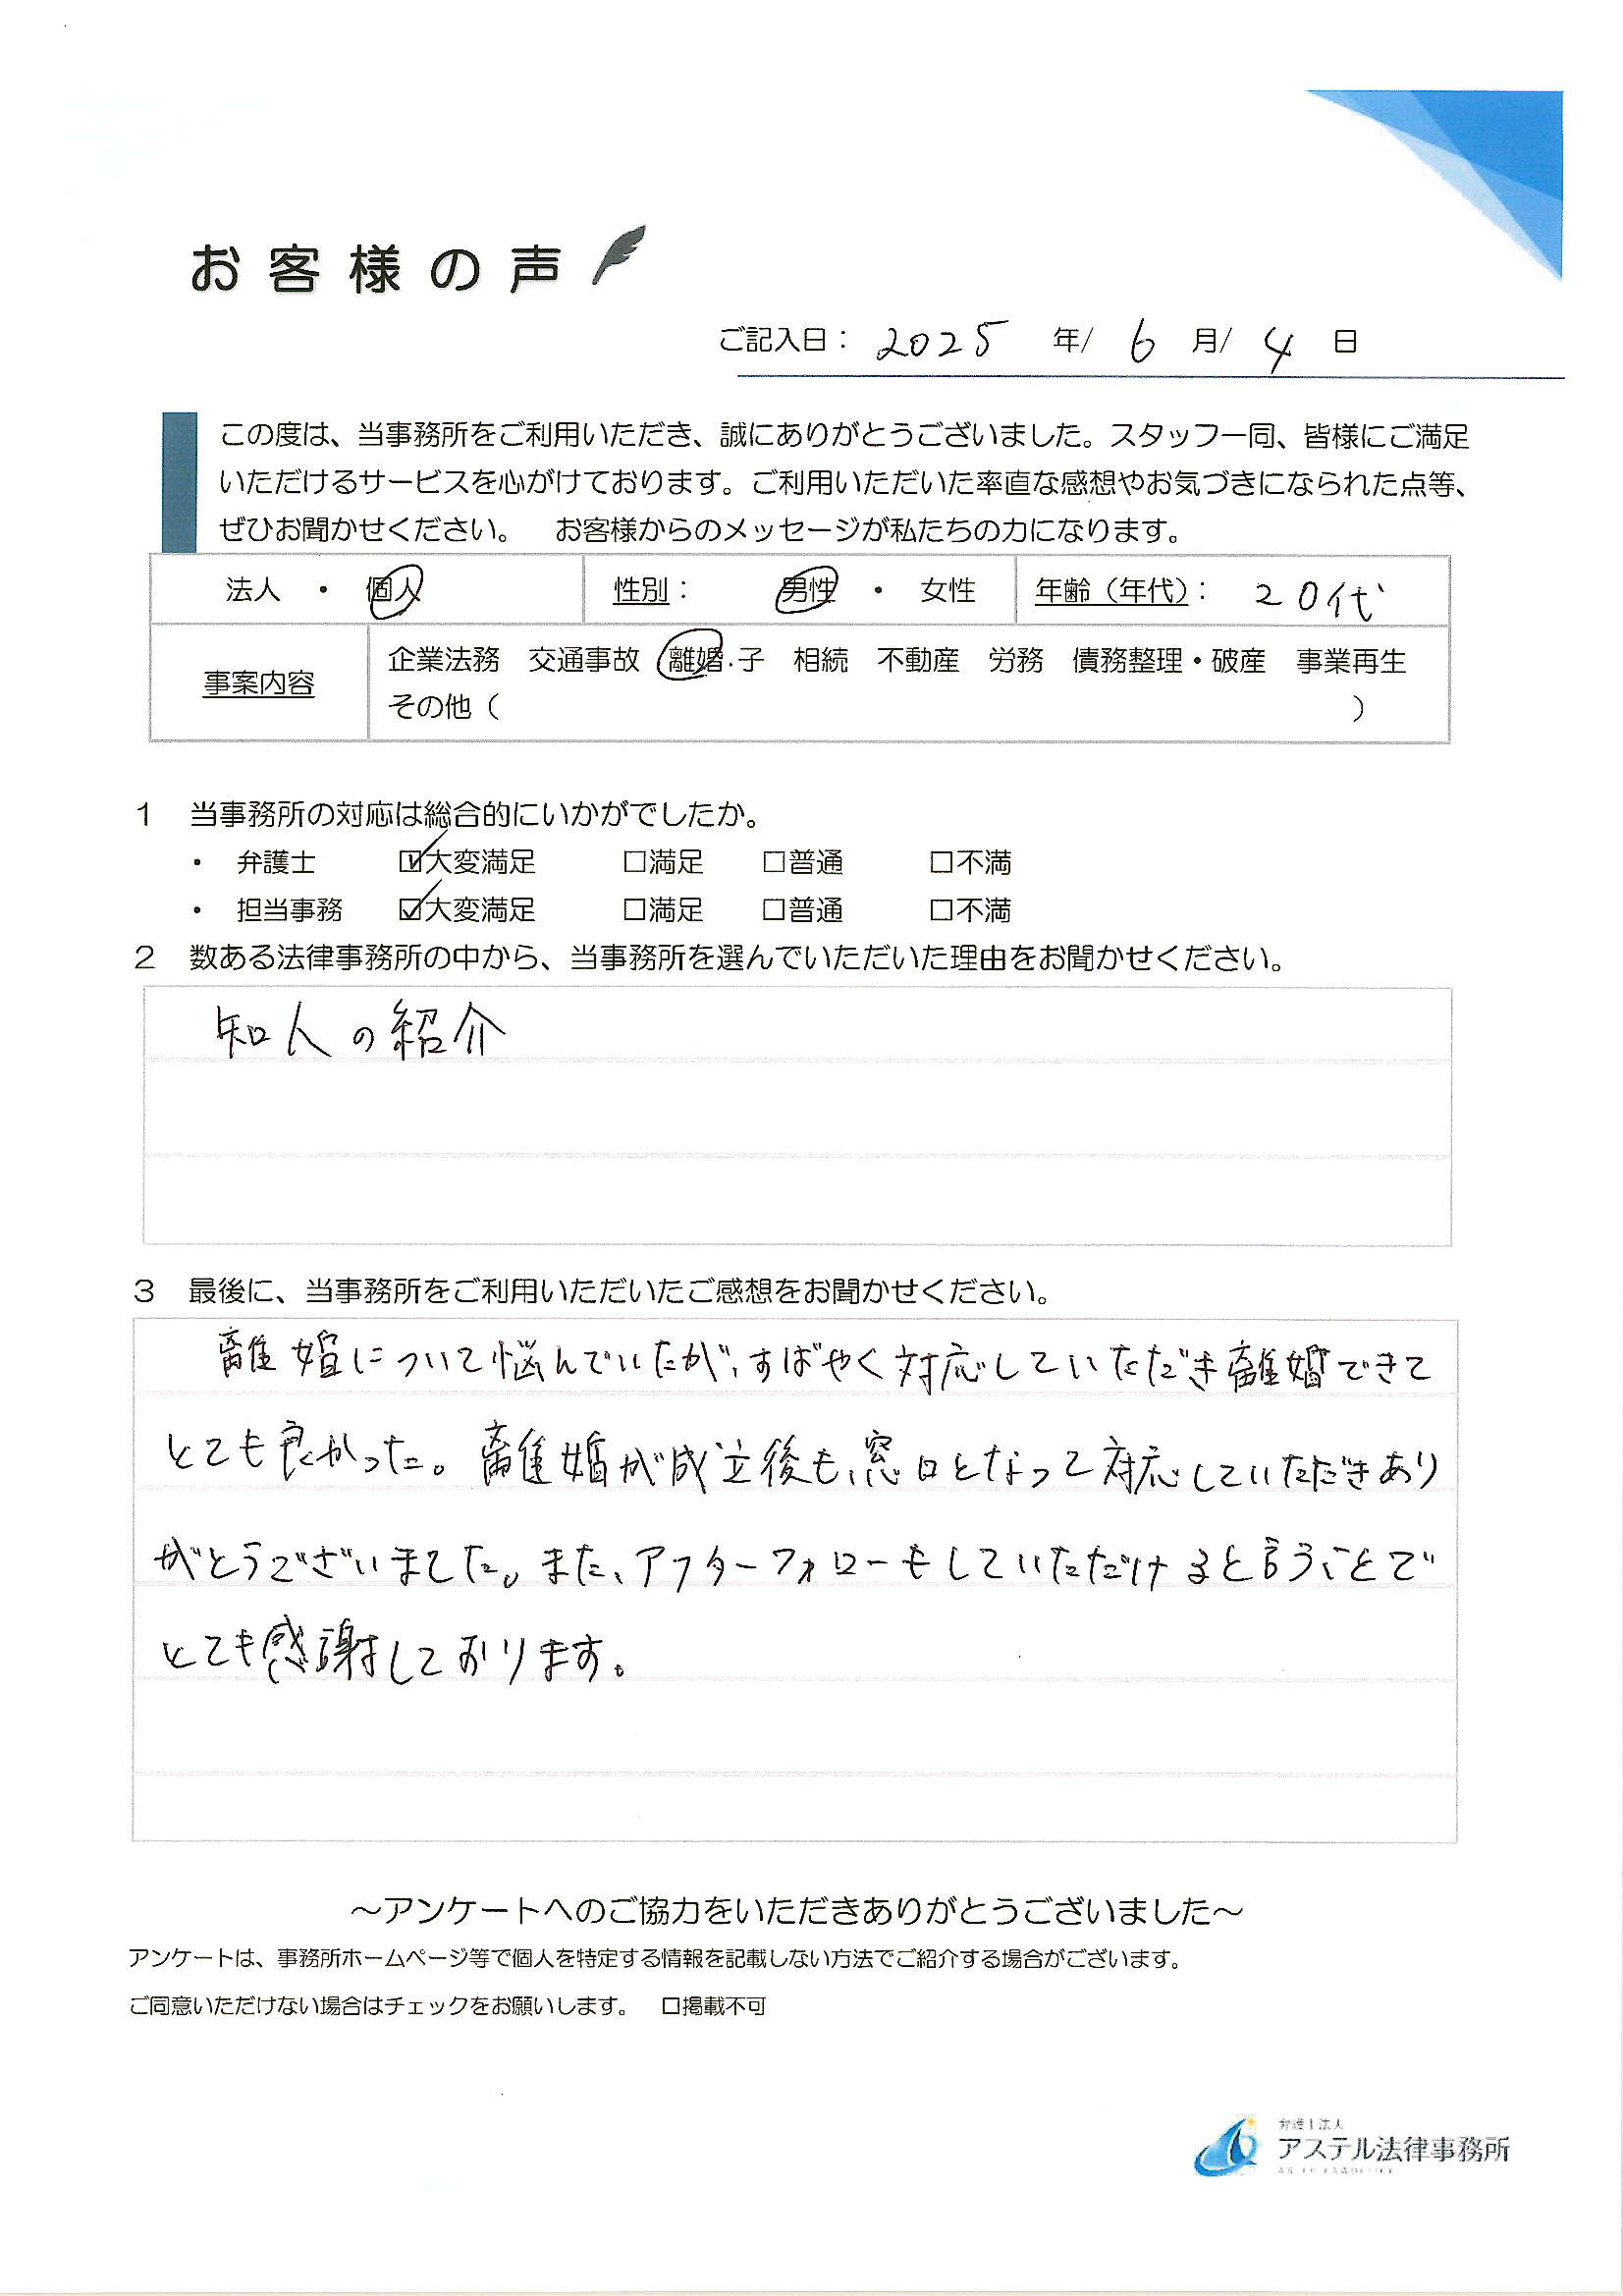 お客様の声
ご記入日： 2025 年/ 6 月/ 4 日
この度は、当事務所をご利用いただき、誠にありがとうございました。スタッフ一同、皆様にご満足
いただけるサービスを心がけております。ご利用いただいた率直な感想やお気づきになられた点等、
ぜひお聞かせください。 お客様からのメッセージが私たちの力になります。
法人 ・ 個人 性別： 男性 ・ 女性 年齢（年代）： 20代
事案内容 企業法務 交通事故 離婚・子 相続 不動産 労務 債務整理・破産 事業再生
その他（ ）
1 当事務所の対応は総合的にいかがでしたか。
・ 弁護士 ☑大変満足 □満足 □普通 □不満
・ 担当事務 ☑大変満足 □満足 □普通 □不満
2 数ある法律事務所の中から、当事務所を選んでいただいた理由をお聞かせください。
知人の紹介
3 最後に、当事務所をご利用いただいたご感想をお聞かせください。
離婚について悩んでいたが、すばやく対応していただき離婚できて
とても良かった。離婚が成立後も、窓口となって対応していただきあり
がとうございました。また、アフターフォローもしていただけると言うことで
とても感謝しております。
～アンケートへのご協力をいただきありがとうございました～
アンケートは、事務所ホームページ等で個人を特定する情報を記載しない方法でご紹介する場合がございます。
ご同意いただけない場合はチェックをお願いします。 □掲載不可
弁護士法人
アステル法律事務所